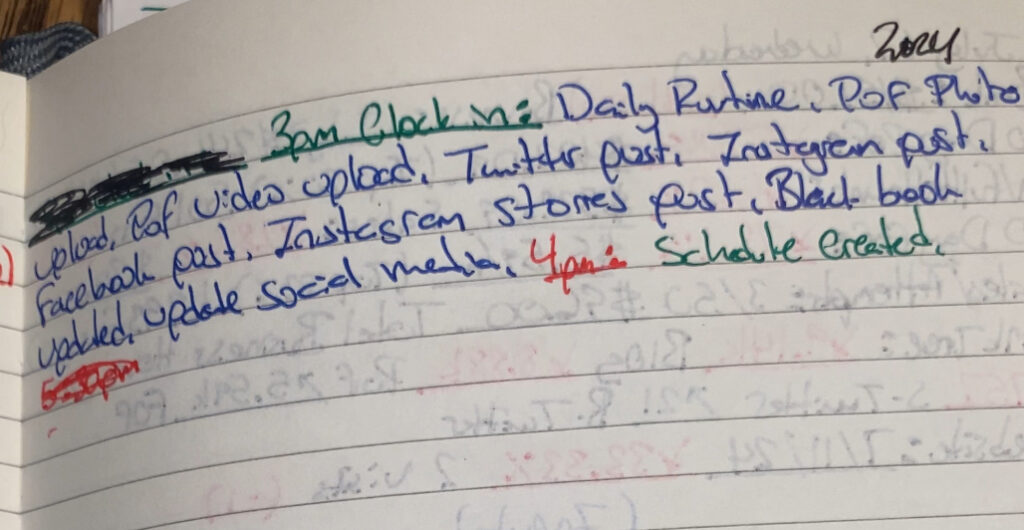 2024
3pm Clock in: Daily Rutine, Pof Photo
upload, Pof video upload, Twitter post, Instagram post,
Facebook post, Instagram stories post, Black book
updated, update social media, 4pm: Schedule Created,
5:30pm